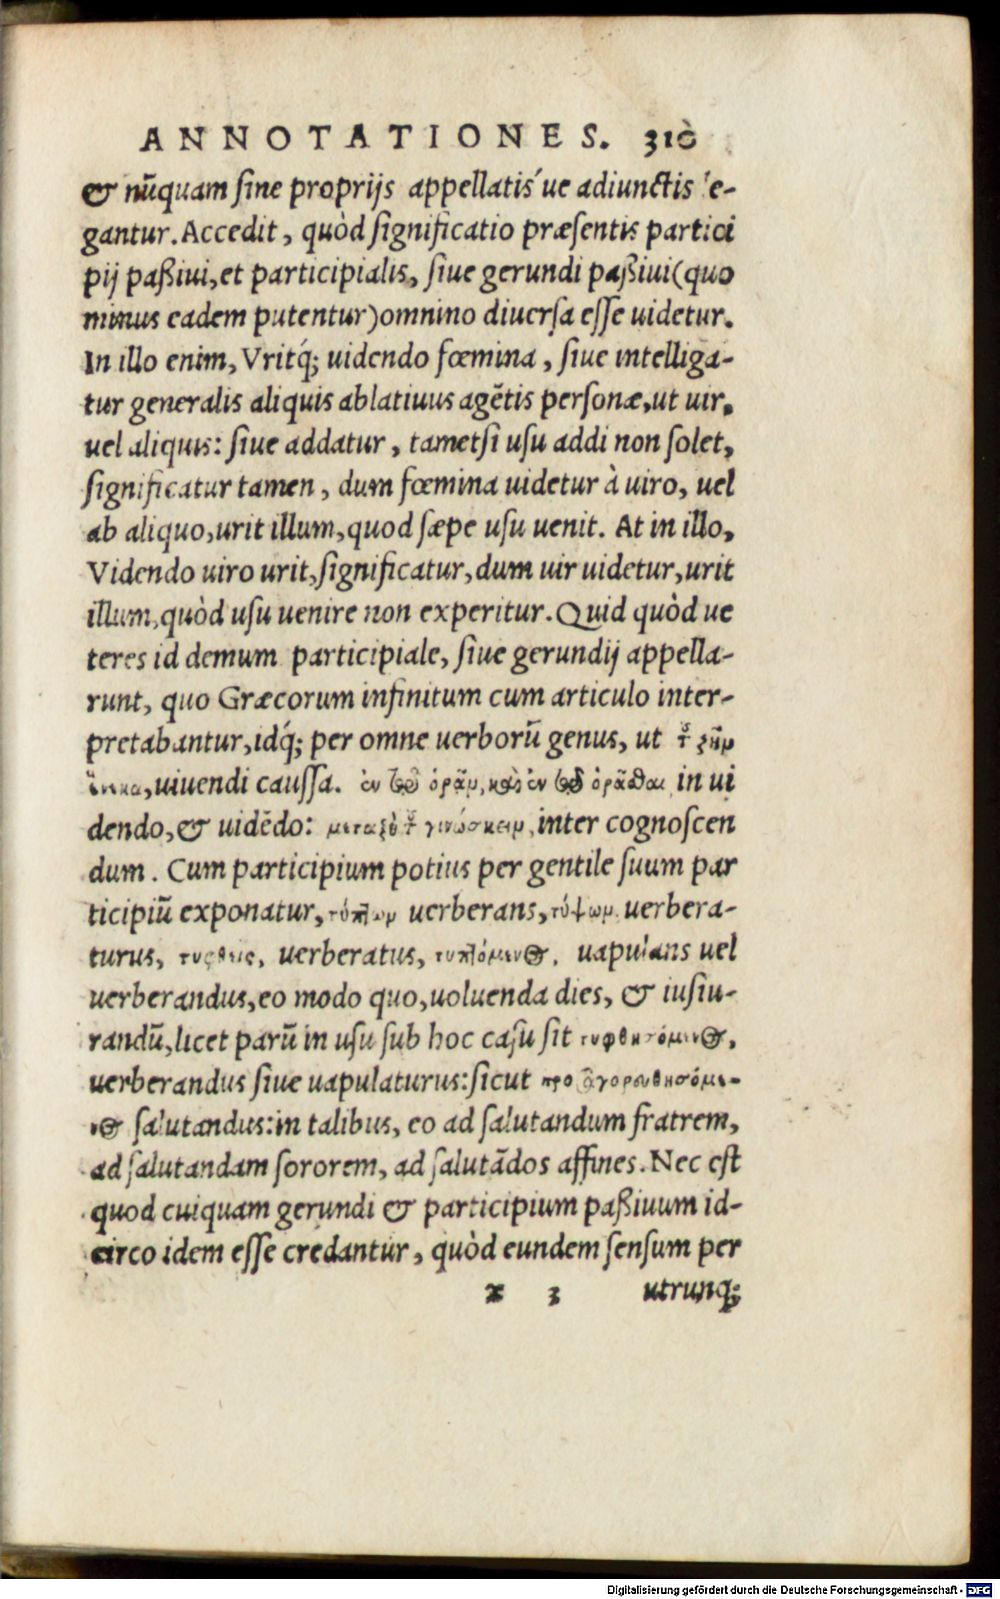 ANNOTATIONES. 310
& nũquam sine proprijs appellatis´ue adiunctis le-
gantur. Accedit, quòd significatio præsentis partici
pij paßiui, et participialis, siue gerundi paßiui (quo
minus eadem putentur) omnino diuersa esse uidetur.
In illo enim, Vritq́; uidendo fœmina, siue intelliga-
tur generalis aliquis ablatiuus agẽtis personæ, ut uir,
uel aliquis: siue addatur, tametsi usu addi non solet,
significatur tamen, dum fœmina uidetur à uiro, uel
ab aliquo, urit illum, quod sæpe usu uenit. At in illo,
Videndo uiro urit, significatur, dum uir uidetur, urit
illum, quòd usu uenire non experitur. Quid quòd ue
teres id demum participiale, siue gerundij appella-
runt, quo Græcorum infinitum cum articulo inter-
pretabantur, idq́; per omne uerborũ genus, ut τȣ͂ ζῆν
ἕνεκα, uiuendi caussa. ἐν τῷ ὁρᾶν, καὶ ἐν τῷ ὁρᾶσθαι, in ui
dendo, & uidẽdo: μεταξὺ τȣ͂ γινώσκειν, inter cognoscen
dum. Cum participium potius per gentile suum par
ticipiũ exponatur, τύπτων uerberans, τύψων, uerbera-
turus, τυφθεὶς, uerberatus, τυπτόμενος, uapulans uel
uerberandus, eo modo quo, uoluenda dies, & iusiu-
randũ, licet parũ in usu sub hoc casu sit τυφθησόμενος,
uerberandus siue uapulaturus: sicut προσαγορευθησόμε-
νος salutandus: in talibus, eo ad salutandum fratrem,
ad salutandam sororem, ad salutãdos affines. Nec est
quod cuiquam gerundi & participium paßiuum id-
circo idem esse credantur, quòd eundem sensum per
x 3 utrunq;
Digitalisierung gefördert durch die Deutsche Forschungsgemeinschaft - DFG